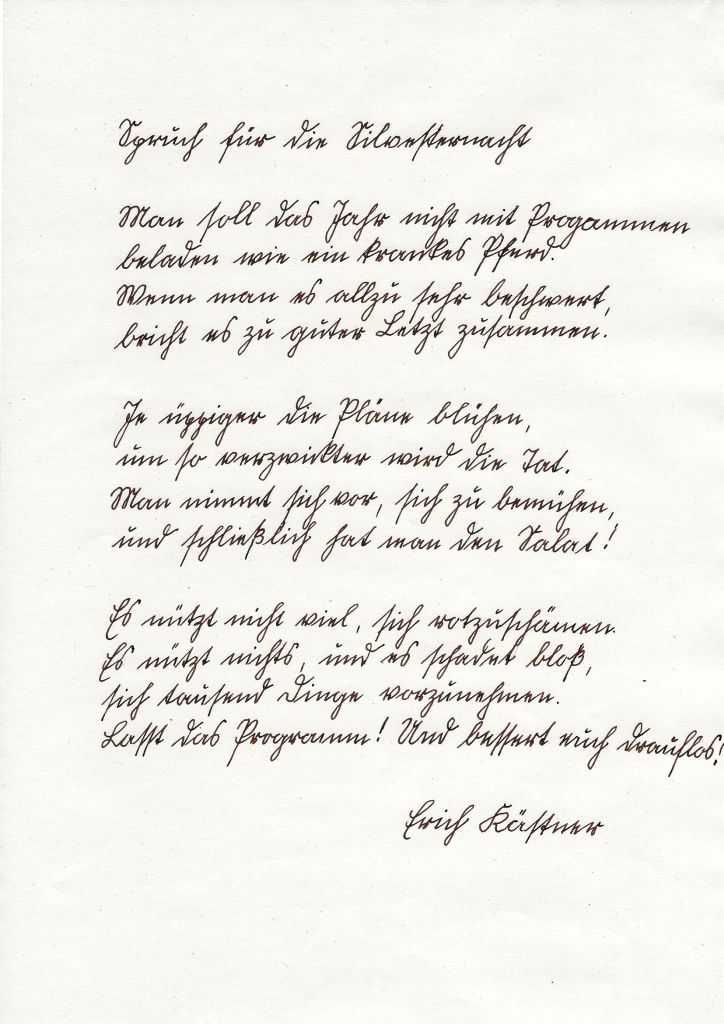 Spruch für die Silvesternacht
Man soll das Jahr nicht mit Progammen
beladen wie ein krankes Pferd.
Wenn man es allzu sehr beschwert,
bricht es zu guter Letzt zusammen.
Je üppiger die Pläne blühen,
um so verzwickter wird die Tat.
Man nimmt sich vor, sich zu bemühen,
und schließlich hat man den Salat!
Es nützt nicht viel, sich rotzuschämen.
Es nützt nichts, und es schadet bloß,
sich tausend Dinge vorzunehmen.
Lasst das Programm! Und bessert euch drauflos!
Erich Kästner